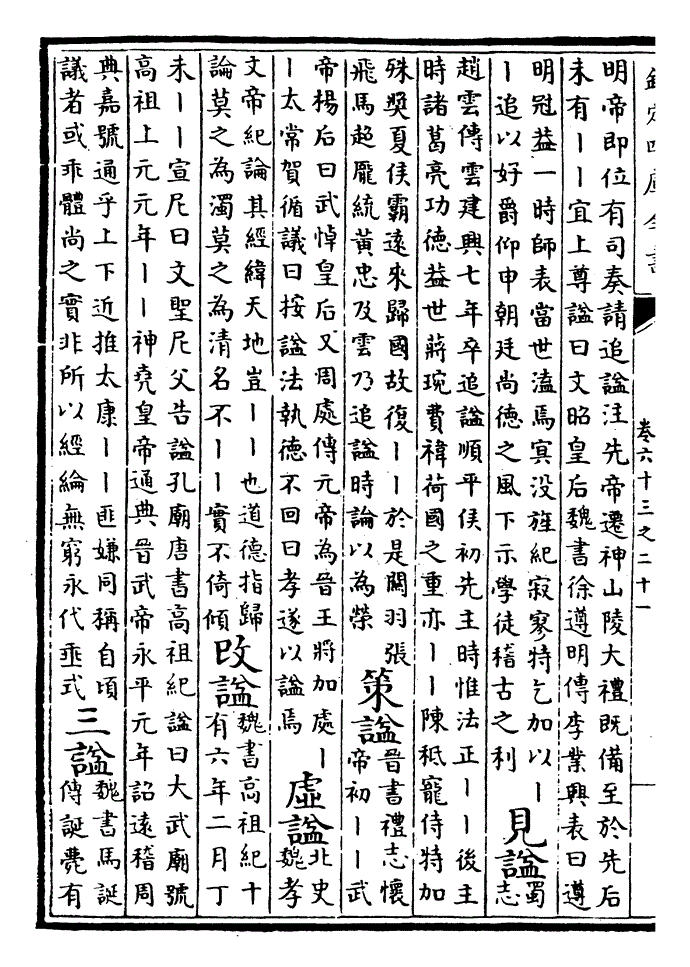 欽定四庫全書
卷六十三之二十一
明帝即位有司奏請追諡注先帝遷神山陵大禮既備至於先后
未有丨丨宜上尊諡曰文昭皇后魏書徐遵明傳李業興表曰遵
明冠益一時師表當世溘焉冥没旌紀寂寥特乞加以丨
丨追以好爵仰申朝廷尚德之風下示學徒稽古之利
見諡
蜀
志
趙雲傳雲建興七年卒追諡順平侯初先主時惟法正丨丨後主
時諸葛亮功德益世蔣琬費禕荷國之重亦丨丨陳秪寵侍特加
殊奬夏侯霸遠來歸國故復丨丨於是關羽張
飛馬超龐統黄忠及雲乃追諡時論以為榮
策諡
晉書禮志懷
帝初丨丨武
帝楊后曰武悼皇后又周處傳元帝為晉王將加處丨
丨太常賀循議曰按諡法執德不回曰孝遂以諡焉
虛諡
北史
魏孝
文帝紀論其經緯天地豈丨丨也道德指歸
論莫之為濁莫之為清名不丨丨實不倚傾
改諡
魏書高祖紀十
有六年二月丁
未丨丨宣尼曰文聖尼父告諡孔廟唐書高祖紀諡曰大武廟號
高祖上元元年丨丨神堯皇帝通典晉武帝永平元年詔遠稽周
典嘉號通乎上下近推太康丨丨匪嫌同稱自頃
議者或乖體尚之實非所以經綸無窮永代垂式
三諡
魏書馬誕
傳誕薨有